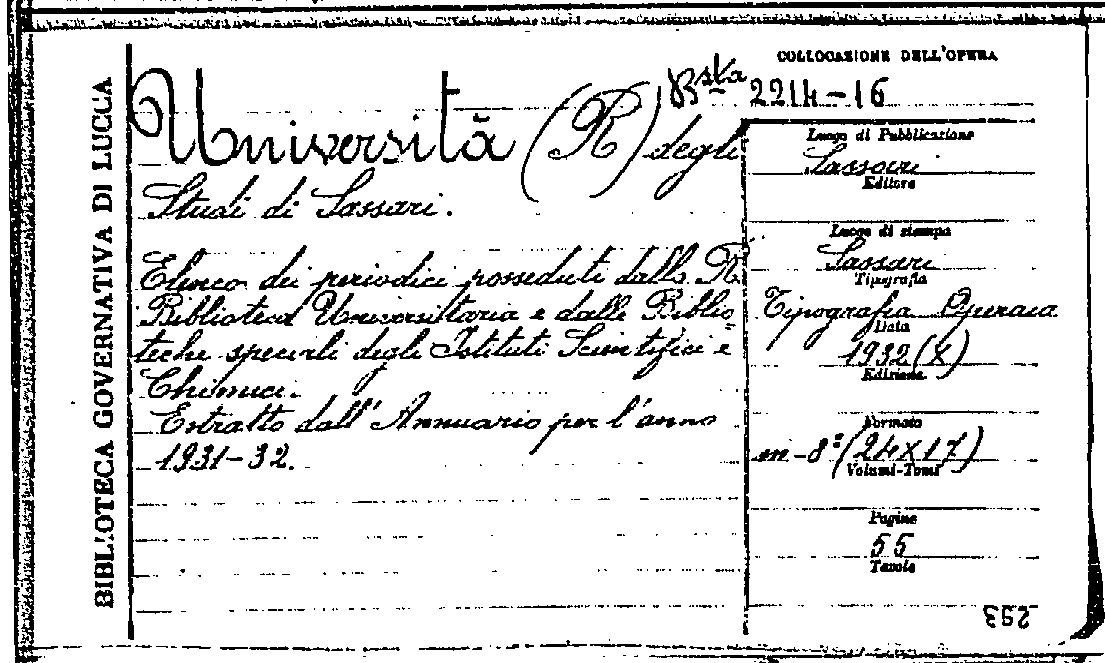 BIBLIOTECA GOVERNATIVA DI LUCCA
COLLOCAZIONE DELL'OPERA
Bsta 2214-16
Università (R) degli
Studi di Sassari.
Elenco dei periodici posseduti dalla R.
Biblioteca Universitaria e dalle Biblio
teche speciali degli Istituti Scientifici e
Clinici.
Estratto dall'Annuario per l'anno
1931-32.
Luogo di Pubblicazione
Sassari
Editore
Luogo di stampa
Sassari
Tipografia
Tipografia Operaia
Data
1932 (X)
Edizione
Formato
in-8º (24x17)
Volumi-Tomi
Pagine
55
Tavole
293